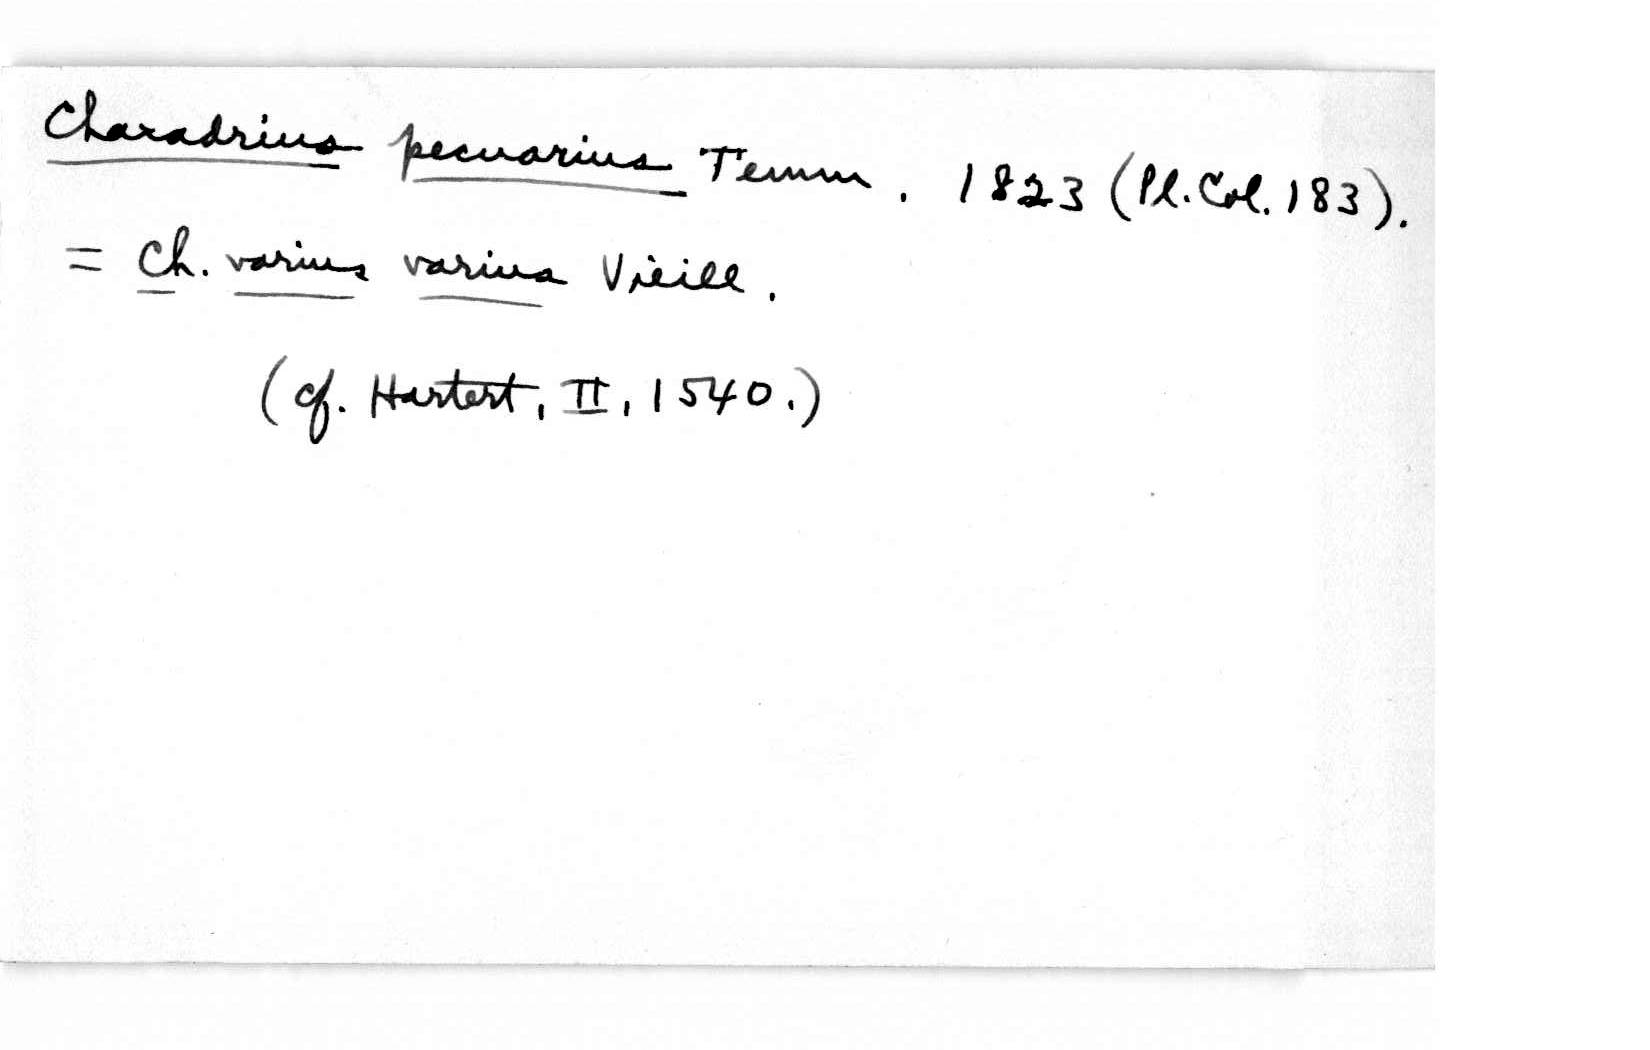 Charadrius pecuarius Temm. 1823 (Pl. Col. 183).
= Ch. varius varius Vieill.
(cf. Hartert, II, 1540.)